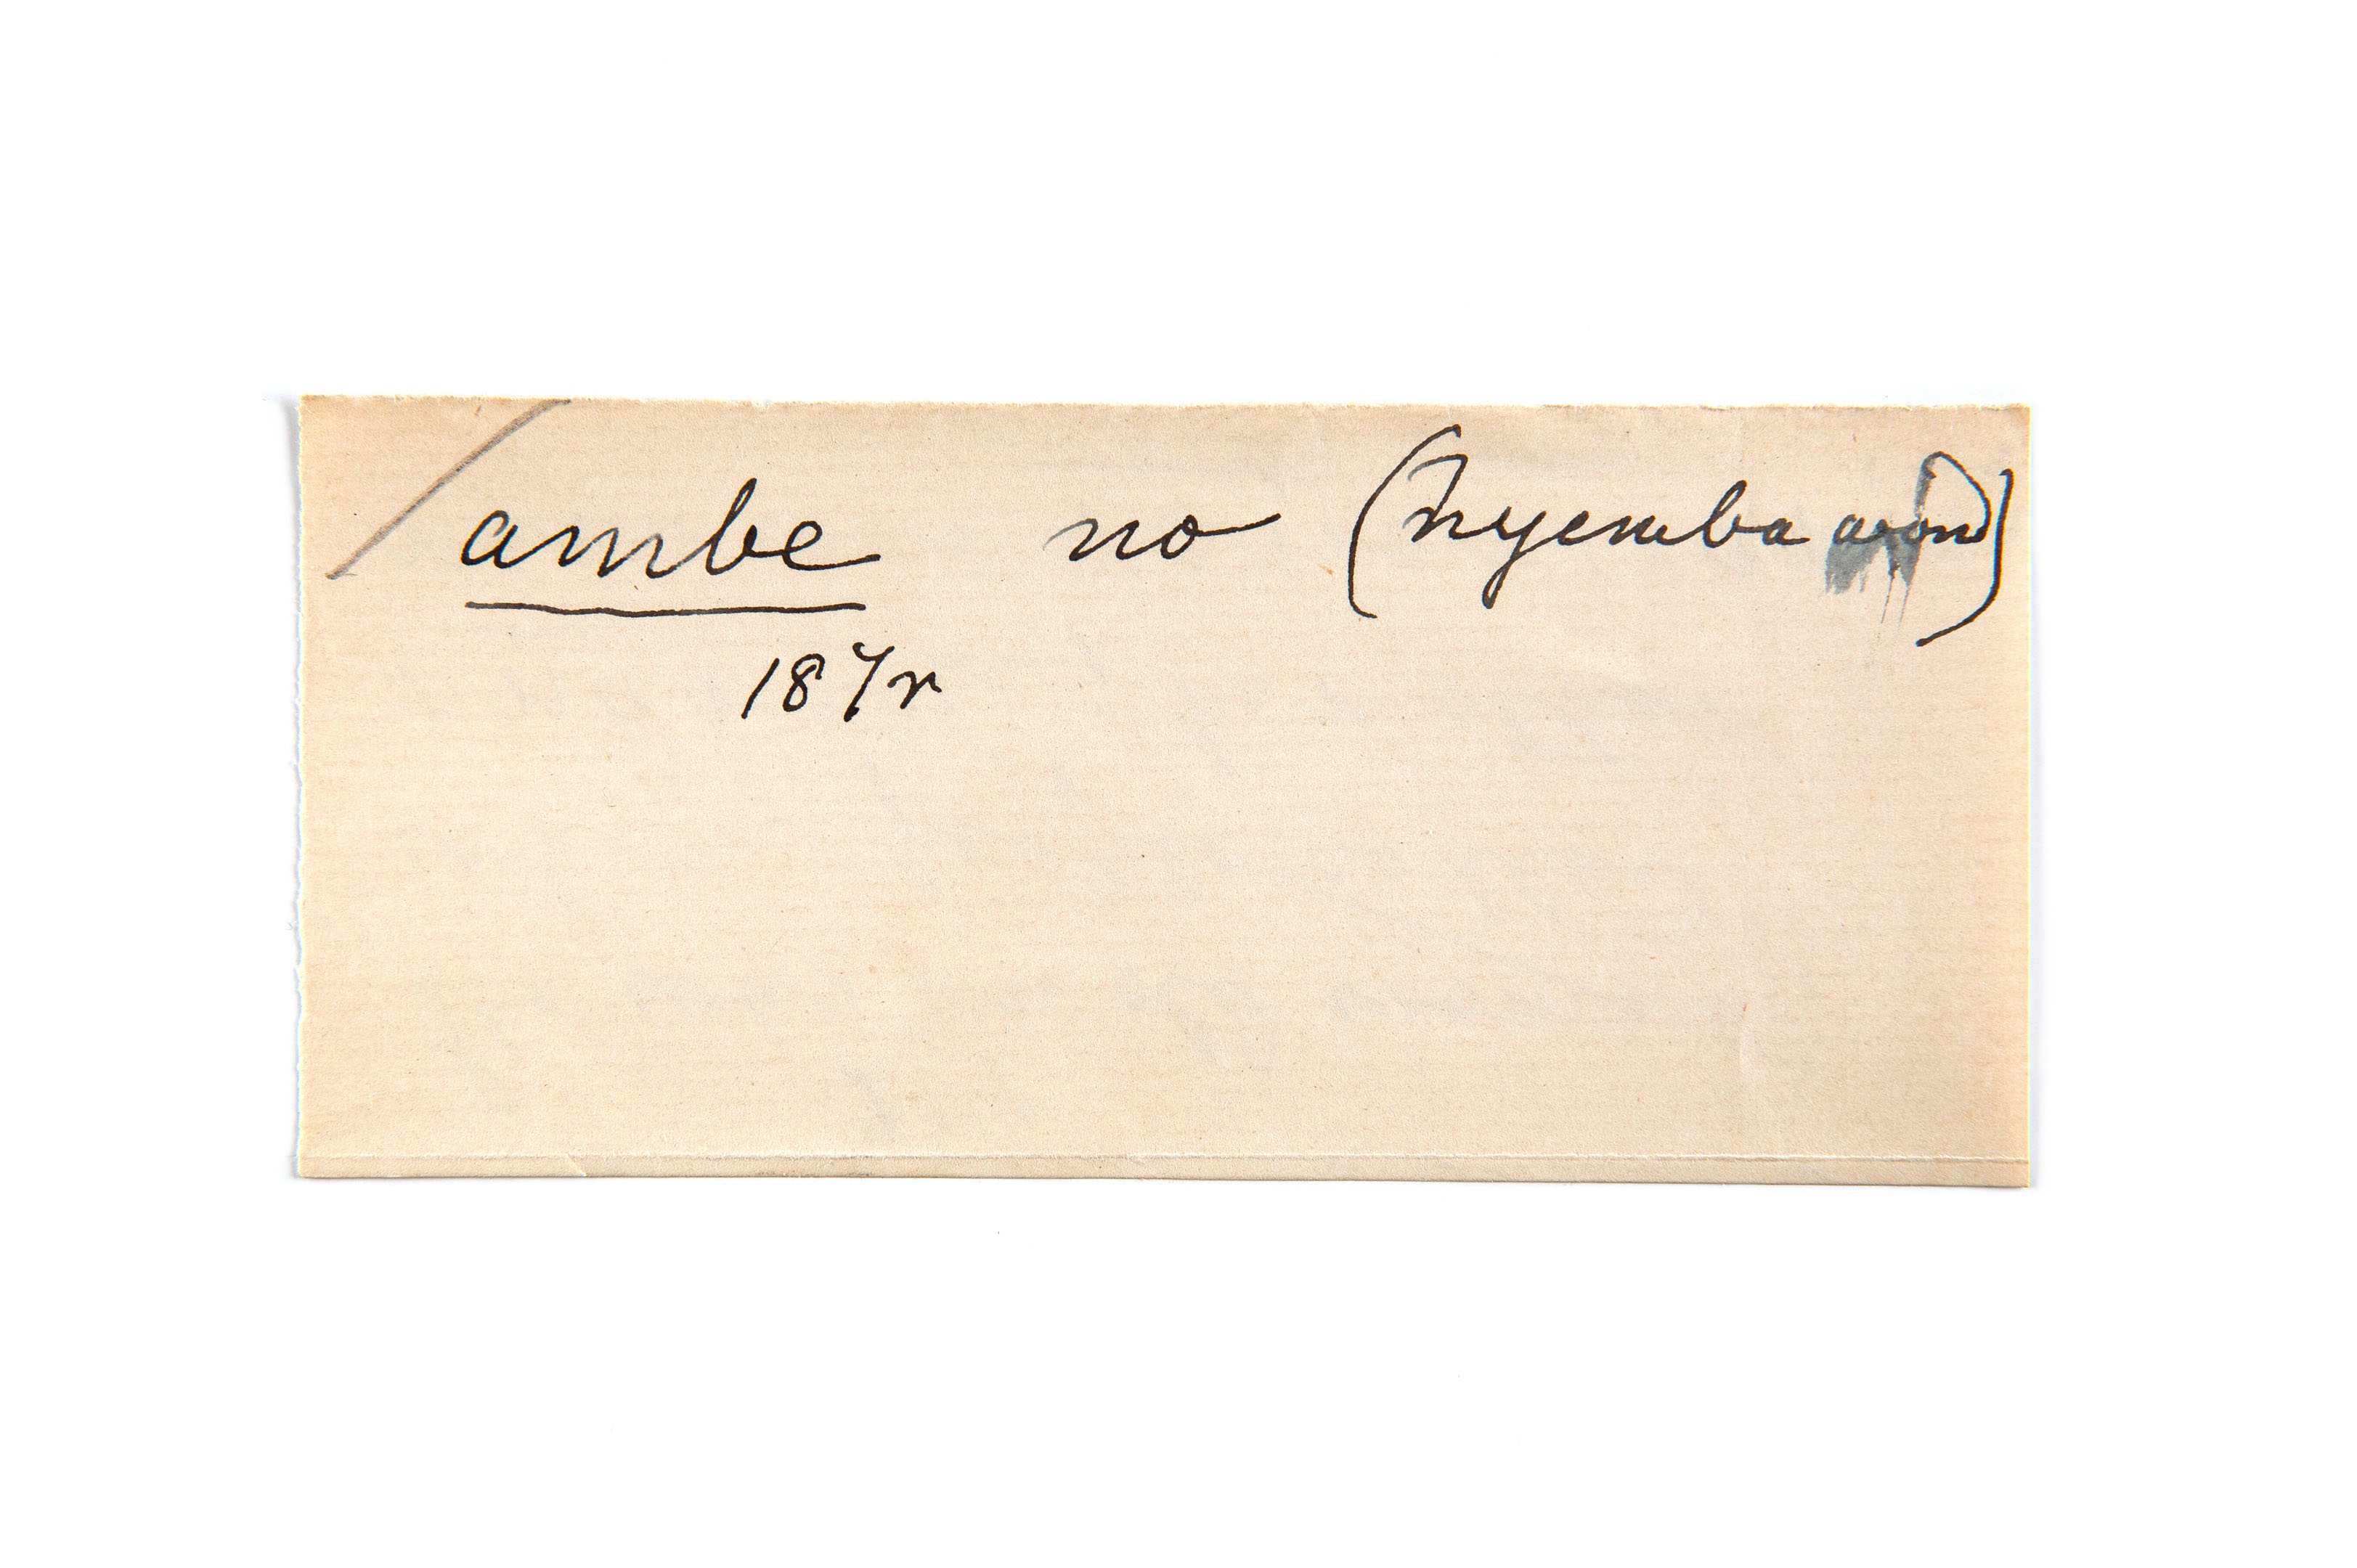 ambe no (nyemba
187r